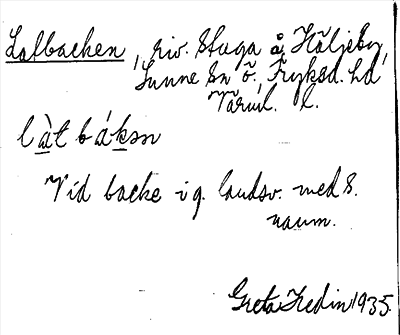 Lalbacken, riv. Stuga å Häljeby,
Sunne sn ö. Fryksd. hd,
Värml. l.
làtbáksn
Vid backe i g. landsv. med s.
namn.
Greta Hedin 1935.